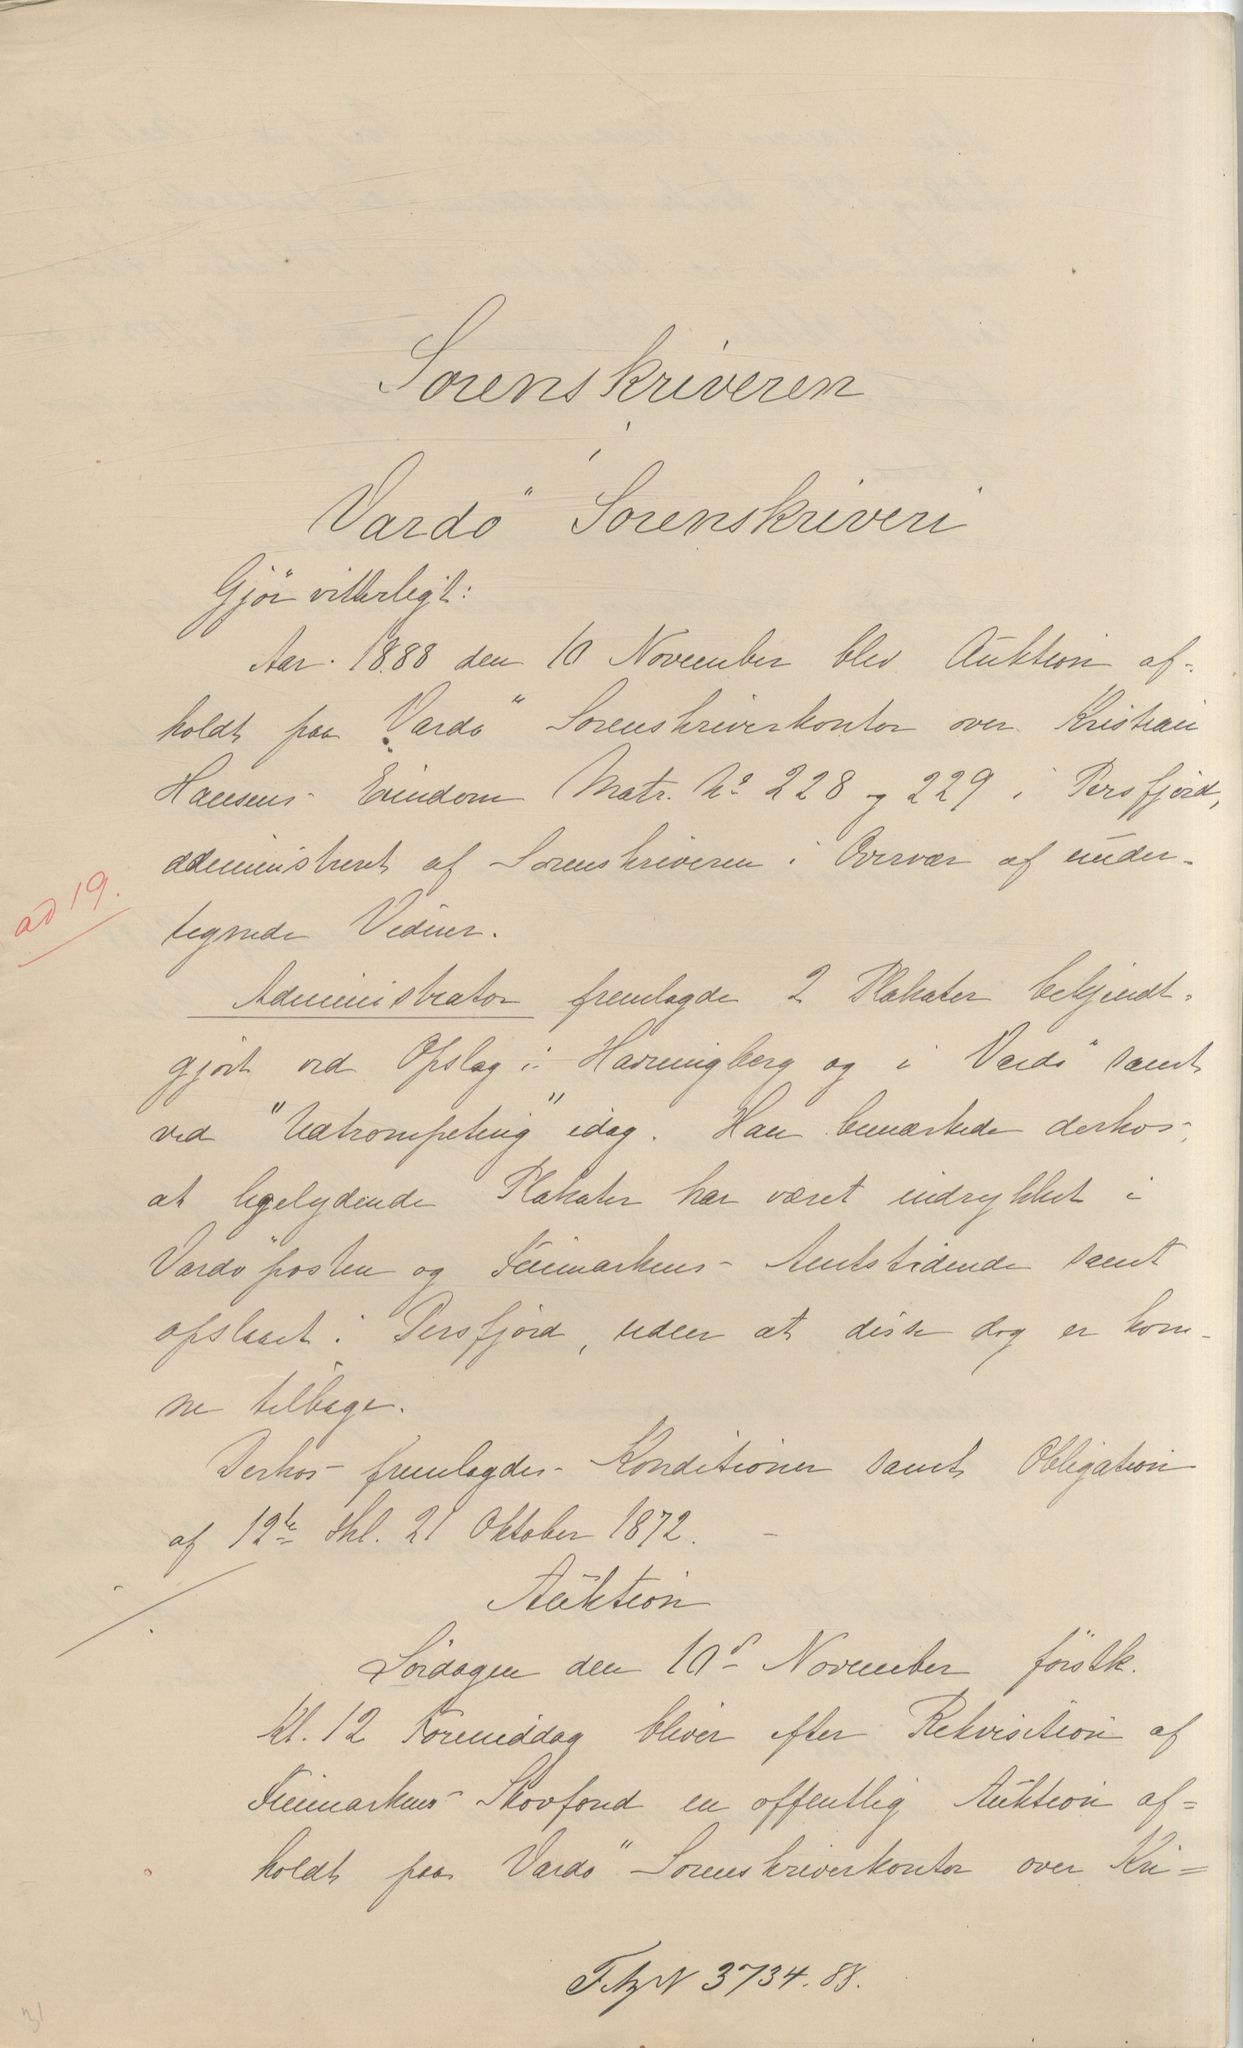 Sorenskriveren
i
Vardö Sorenskriveri
Gjör vitterligt:
Aar 1888 den 10 November blev Auktion af-
holdt paa Vardö Sorenskriverkontor over Kristian
Hansens Eiendom Matr. No 228 og 229 i Persfjord,
administreret af Sorenskriveren i Overvær af under-
tegnede Vidner.
Administrator fremlagde 2 Plakater bekjendt-
gjort ved Opslag i Havningberg og i Vardö samt
ved "Udtrompeting" idag. Han bemærkede derhos,
at ligelydende Plakater har været indrykket i
Vardöposten og Finmarkens Amtstidende samt
opslaaet i Persfjord, uden at disse dog er kom-
ne tilbage.
Derhos fremlagdes Konditioner samt Obligation
af 12te thl. 21 Oktober 1872. -
ad 19.
Auktion
Lördagen den 10de November förstk.
Kl. 12 Formiddag bliver efter Rekvisition af
Finmarkens Skovfond en offentlig Auktion af=
holdt paa Vardö Sorenskriverkontor over Kri=
3734.88.
31